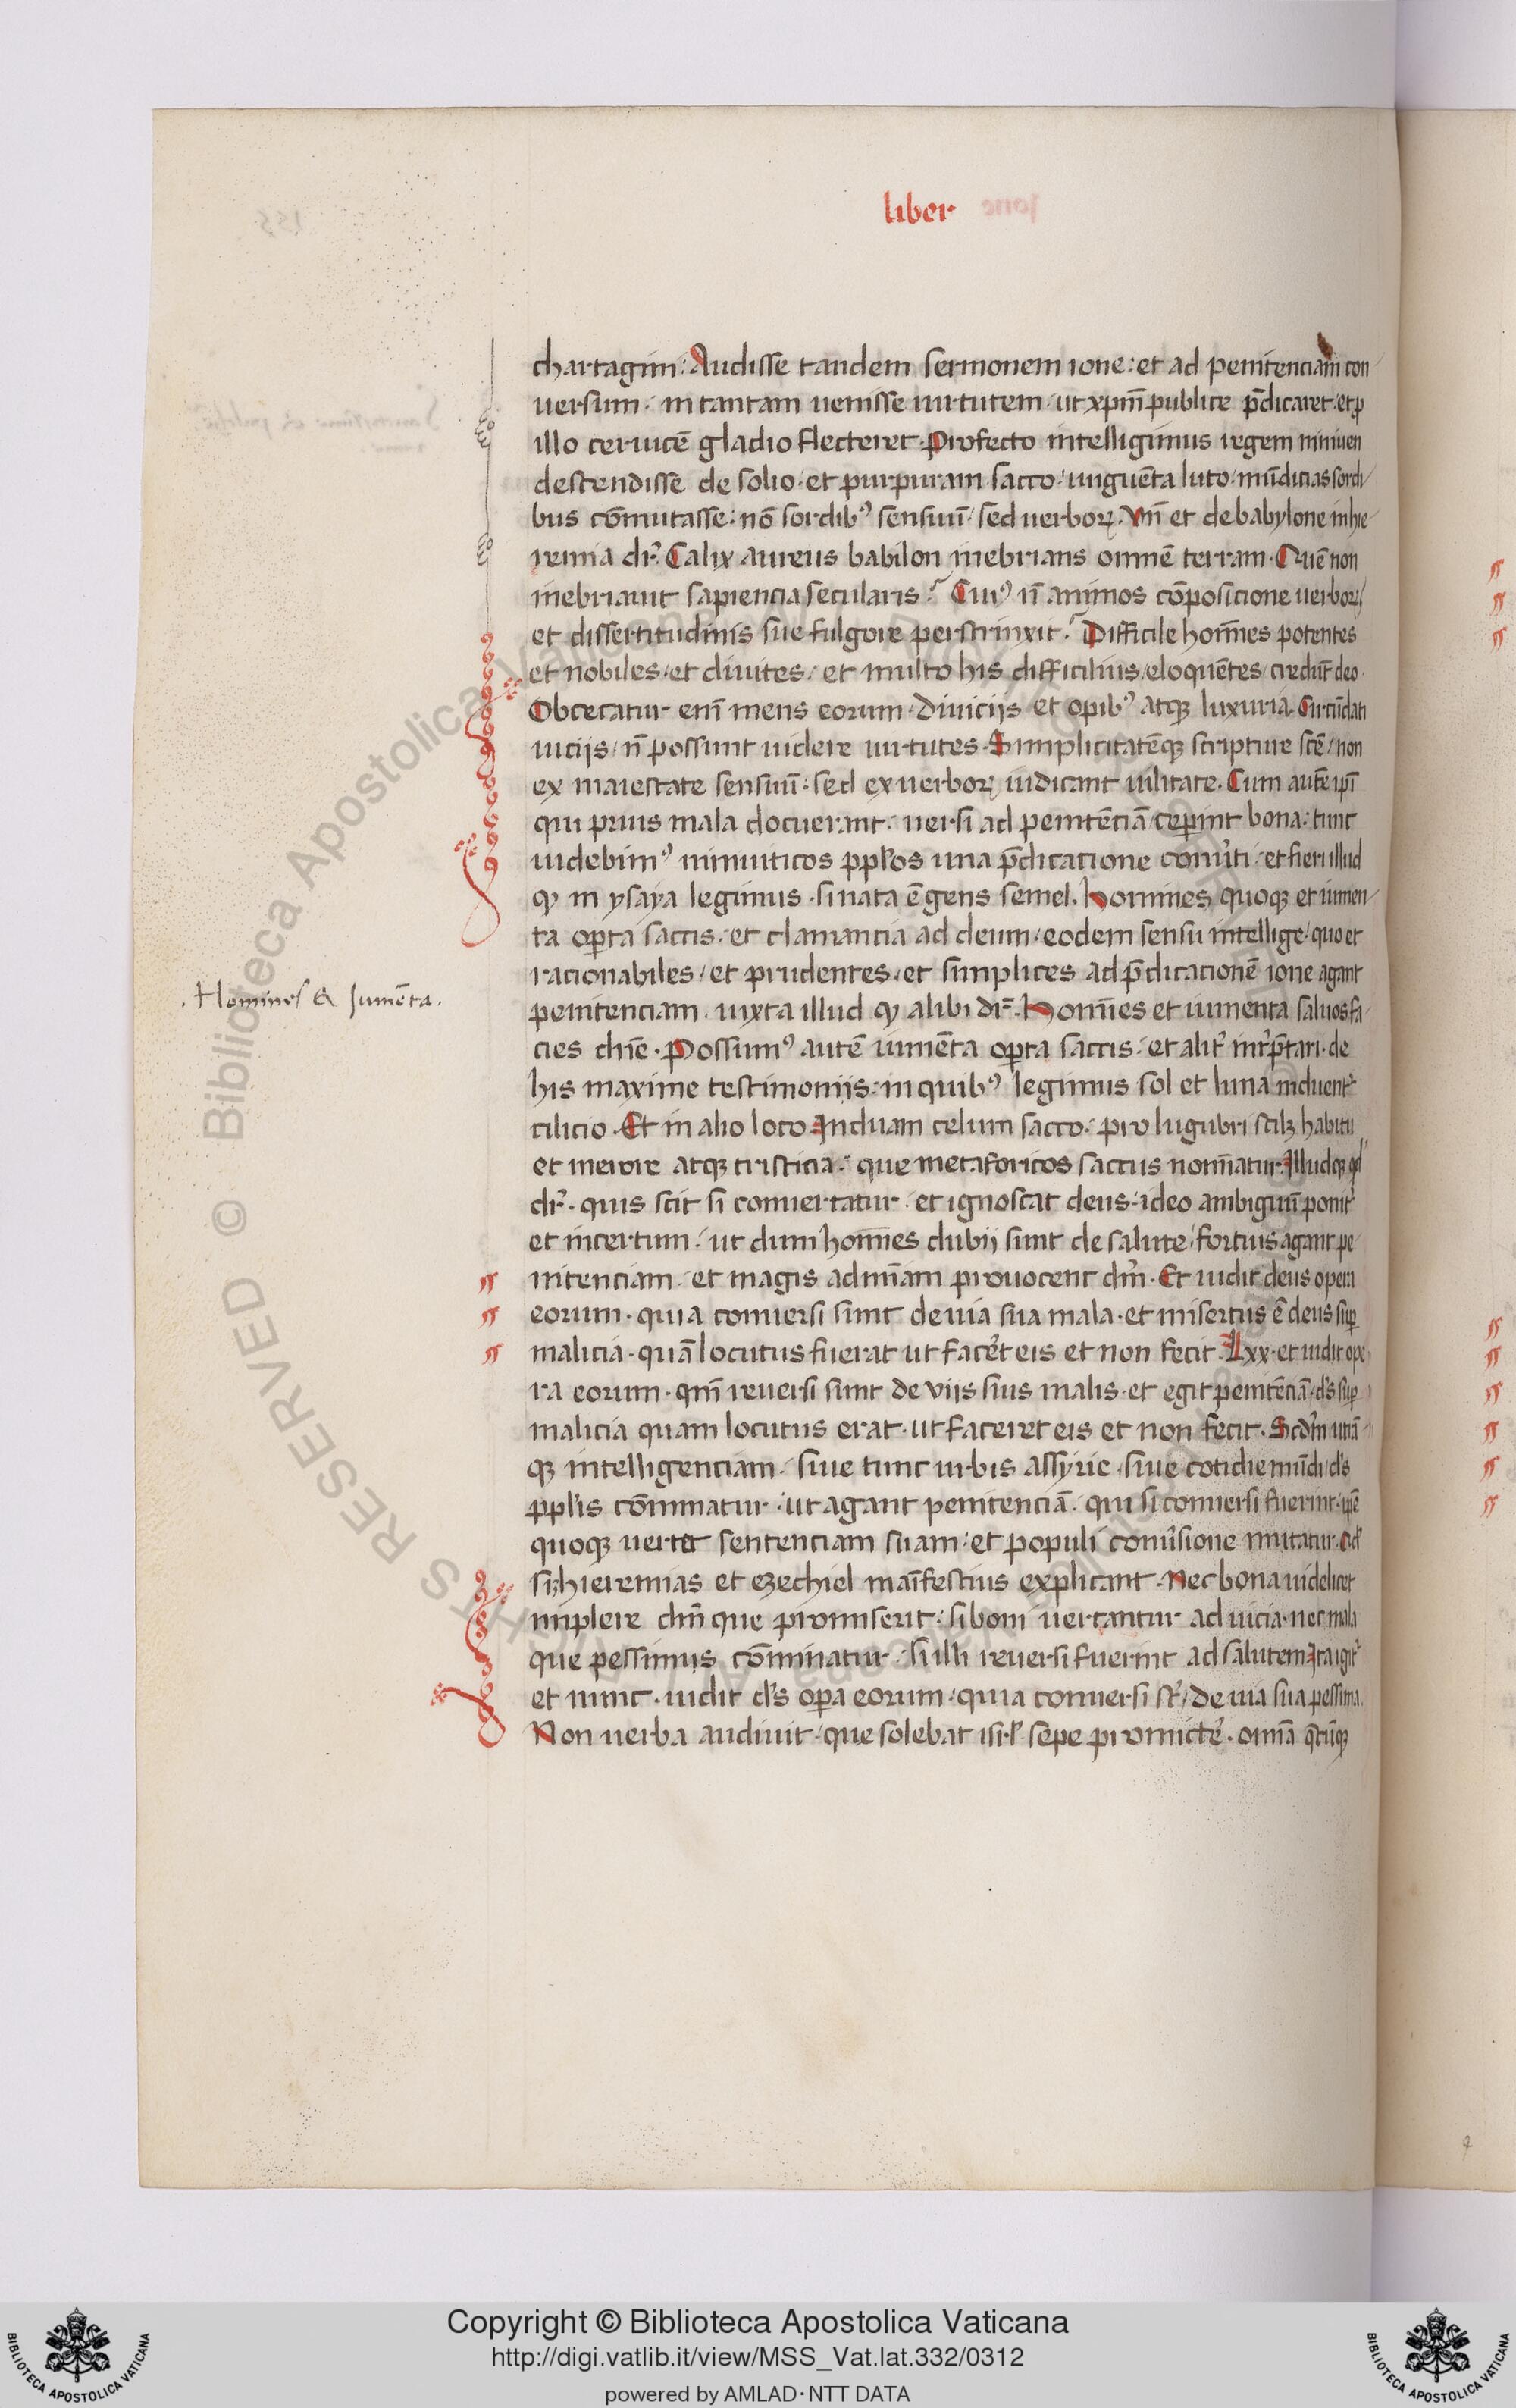 liber
chartagini: Audisse tandem sermonem ione: et ad penitenciam con
uersum. in tantam uenisse uirtutem. ut xp̄m publice p̄dicaret. et ꝓ
illo ceruicē gladio flecteret. Profecto intelligimus regem niniuen
descendisse de solio. et purpuram sacco. unguēta luto. mūdicias sordi
bus cōmutasse: nō sordibꝰ sensuū. sed uerboꝝ. Vñ et de babylone in hie
remia dr̄. Calix aureus babilon inebrians omnē terram. Quē non
inebriauit sapiencia secularis? Cuiꝰ ñ animos cōposicione uerboꝝ
et dissertitudinis sue fulgore perstrinxit? Difficile hoīes potentes
et nobiles. et diuites. et multo his difficilius eloquētes credūt deo.
Obcecatur enī mens eorum. diuiciis et opibꝰ atqꝫ luxuria. Circūdati
uiciis ñ possunt uidere uirtutes. Simplicitatēqꝫ scripture scē non
ex maiestate sensuū: sed ex uerboꝝ iudicant uilitate. Cum autē ip̄i
qui prius mala docuerant. uersi ad penitēciā ceperint bona: tunc
uidebimꝰ niniuiticos ppl̄os una p̄dicatione conuṫi. et fieri illud
qꝫ in ysaya legimus. si nata ē gens semel. Homines quoqꝫ et iumen
ta oꝑta saccis. et clamancia ad deum. eodem sensu intellige. quo et
racionabiles. et prudentes. et simplices ad p̄dicacionē ione agant
penitenciam. iuxta illud qꝫ alibi dr̄. Homīes et iumenta saluos fa
cies dn̄e. Possumꝰ autē iumēta oꝑta saccis. et alit̄ int̄p̄tari. de
his maxime testimoniis. in quibꝰ legimus sol et luna induent̄
cilicio. Et in alio loco Induam celum sacco. pro lugubri scilꝫ habitu
et merore atqꝫ tristicia. que metaforicos saccus nomīatur. Illudqꝫ qd̄
dr̄. quis scit si conuertatur. et ignoscat deus. ideo ambiguū ponit̄
et incertum. ut dum homīes dubij sunt de salute. fortius agant pe
nitenciam. et magis ad mīam prouocent dn̄m. Et uidit deus opera
eorum. quia conuersi sunt de uia sua mala. et misertus ē deus suꝑ
malicia. quā locutus fuerat ut facēt eis et non fecit. Lxx. et uidit ope
ra eorum. qm̄ reuersi sunt de viis suis malis. et egit penitēciā. ds̄ suꝑ
malicia quam locutus erat. ut faceret eis et non fecit. Scd̄m utrā
qꝫ intelligenciam. siue tunc urbis assyrie. siue cotidie mūdi ds̄
ppl̄is cōminatur. ut agant penitenciā. qui si conuersi fuerint. ip̄e
quoqꝫ uertet sentenciam suam. et populi conūsione mutatur. Qd̄
hieremias et ezechiel manīfestius explicant. Nec bona uidelicet
implere dn̄m que promiserit. si boni uertantur ad uicia. nec mala
que pessimus cōminatur. si illi reuersi fuerint ad salutem. Ita igit̄
et nunc. uidit ds̄ oꝑa eorum. quia conuersi st̄. de uia sua pessima.
Non uerba audiuit. que solebat isrl̄ sepe promictē. omīa q̄cūqꝫ
. Homines & Jumēta.
Copyright © Biblioteca Apostolica Vaticana
http://digi.vatlib.it/view/MSS_Vat.lat.332/0312
powered by AMLAD·NTT DATA